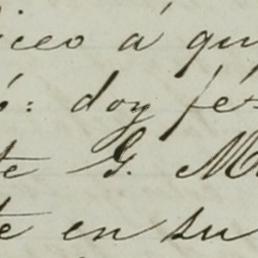 iceo á qu
ó: doy fé
te G. M
te en su